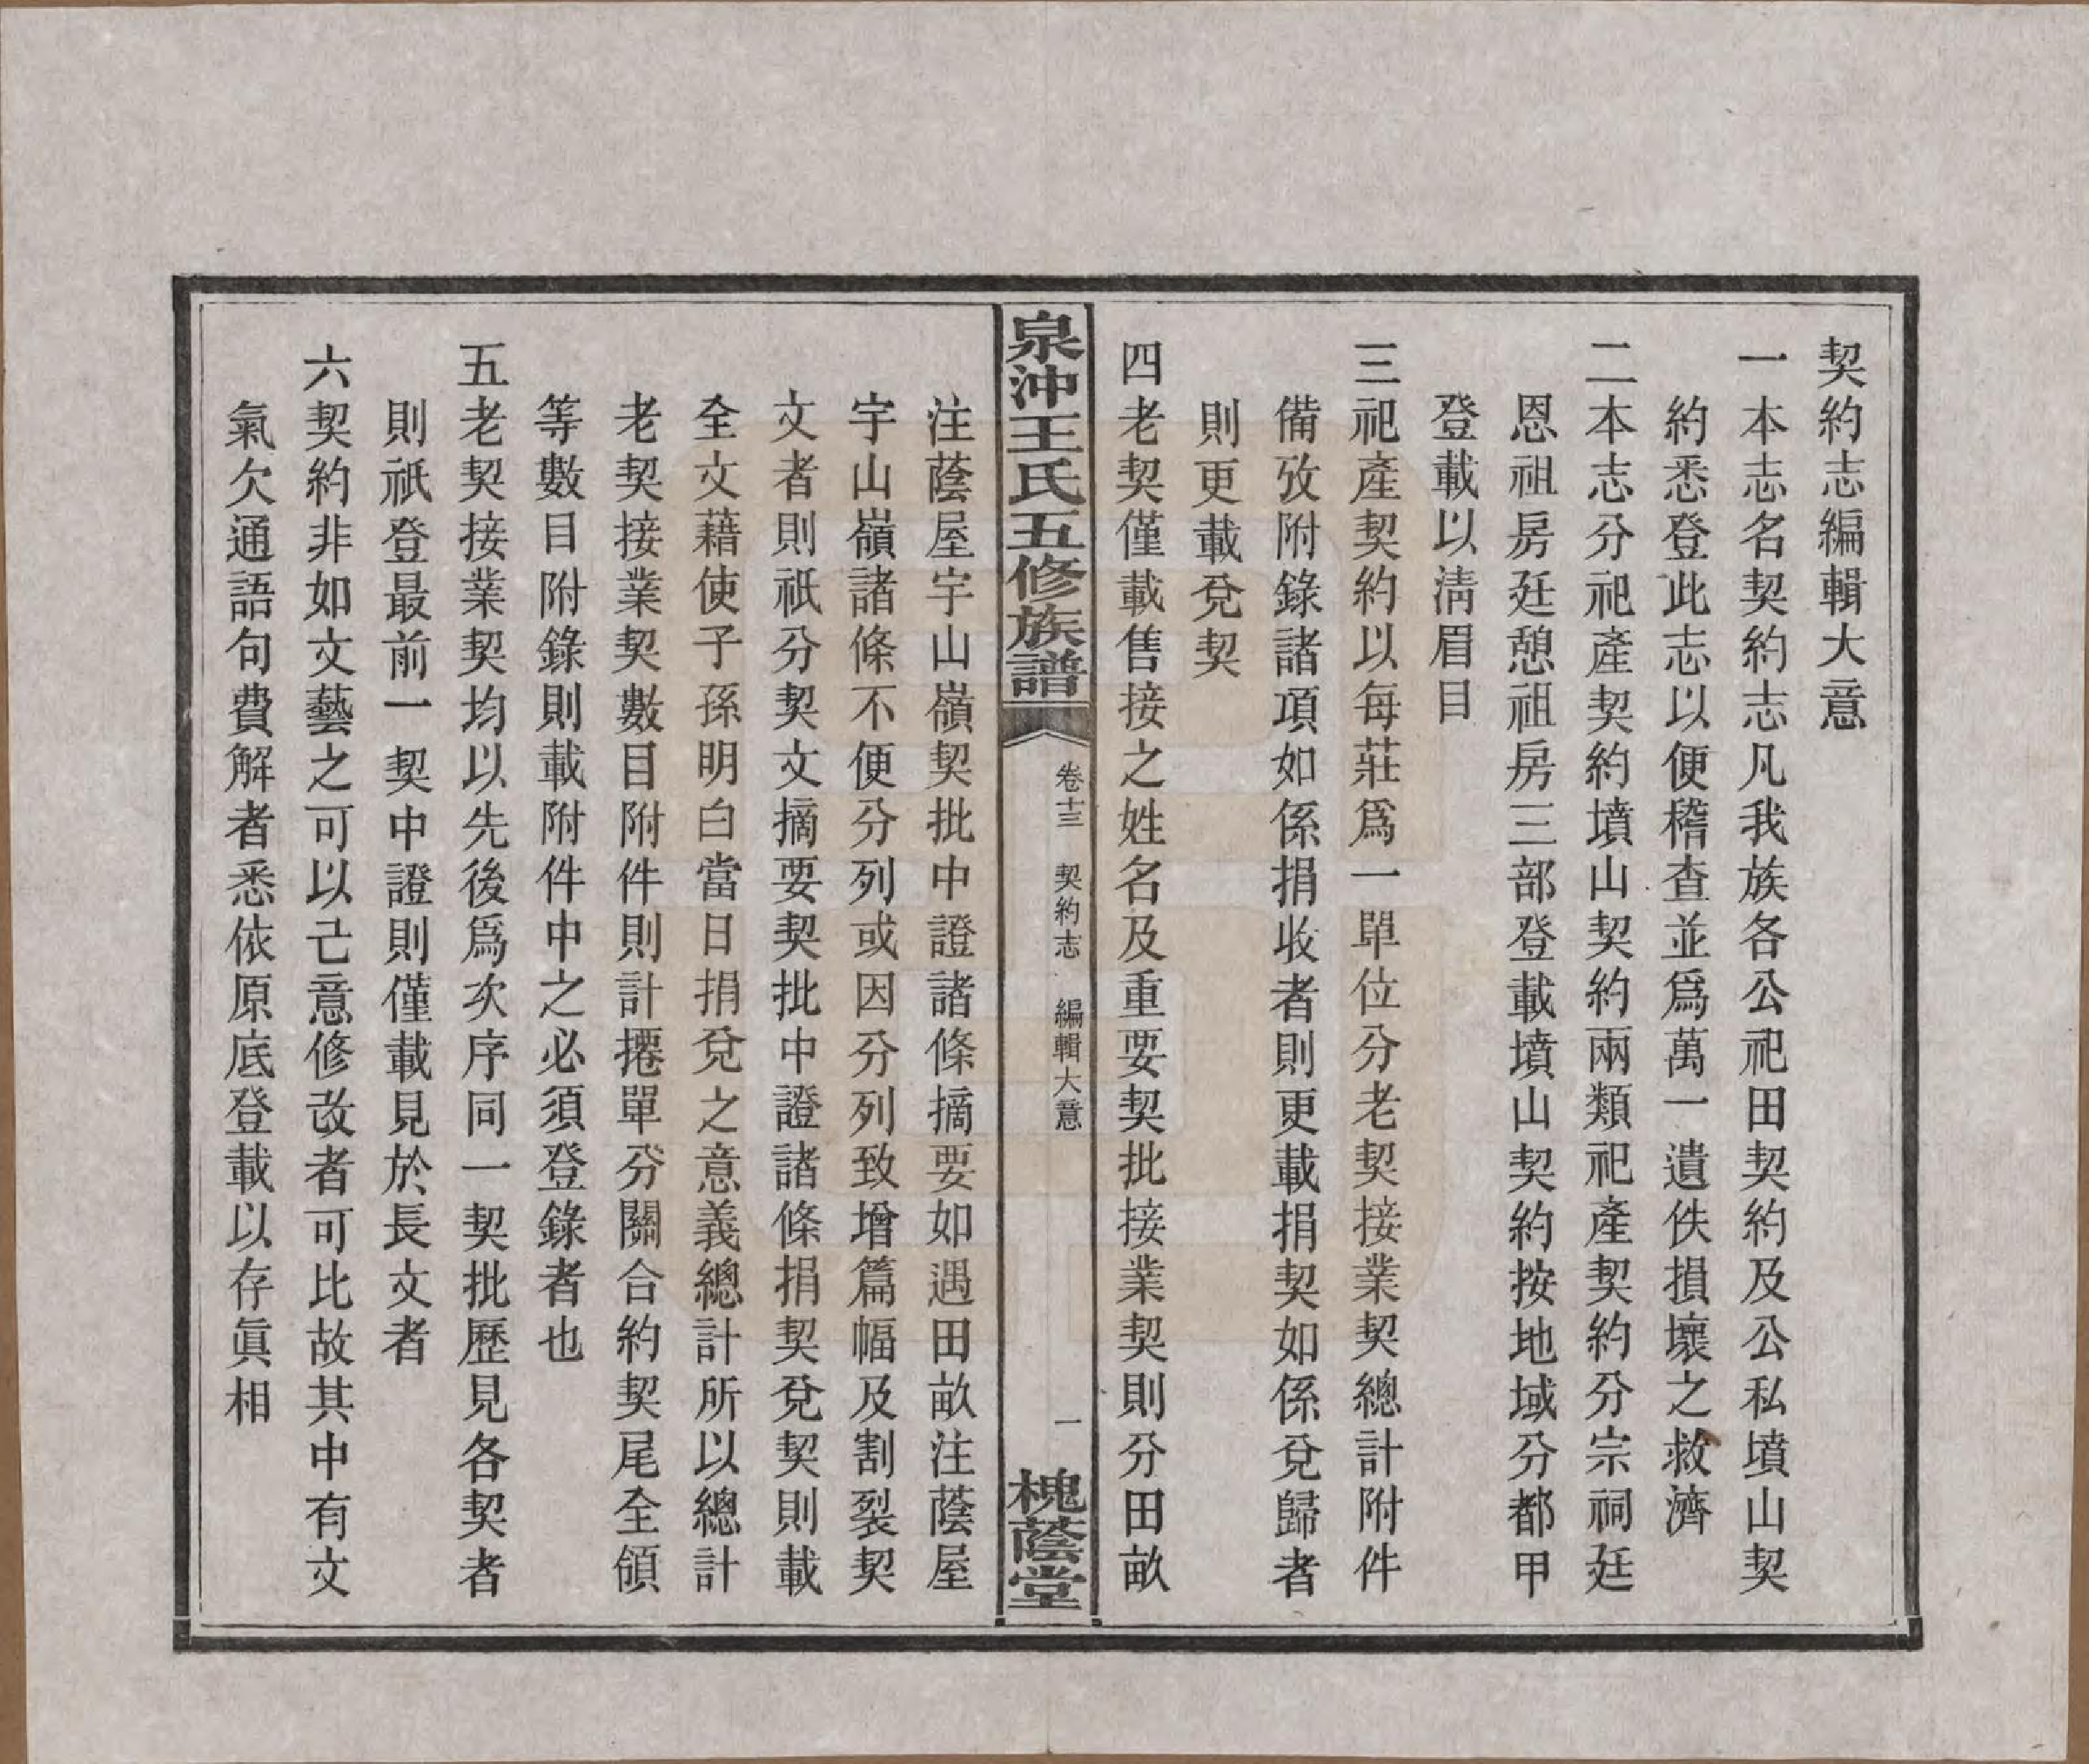 契約志編輯大意
一本志名契約志凡我族各公祀田契約及公私墳山契
約悉登此志以便稽查並爲萬一遺佚損壞之救濟
二本志分祀產契約墳山契約兩類祀產契約分宗祠廷
恩祖房廷憩祖房三部登載墳山契約按地域分都甲
登載以淸眉目
三祀產契約以每莊爲一單位分老契接業契總計附件
備攷附錄諸項如係捐收者則更載捐契如係兌歸者
則更載兌契
四老契僅載售接之姓名及重要契批接業契則分田畝
泉沖王氏五修族譜
卷十三 契約志 編輯大意
一
槐蔭堂
注蔭屋宇山嶺契批中證諸條摘要如遇田畝注蔭屋
宇山嶺諸條不便分列或因分列致增篇幅及割裂契
文者則祇分契文摘要契批中證諸條捐契兌契則載
全文藉使子孫明白當日捐兌之意義總計所以總計
老契接業契數目附件則計攇單分關合約契尾全領
等數目附錄則載附件中之必須登錄者也
五老契接業契均以先後爲次序同一契批歷見各契者
則祇登最前一契中證則僅載見於長文者
六契約非如文藝之可以己意修改者可比故其中有文
氣欠通語句費解者悉依原底登載以存眞相